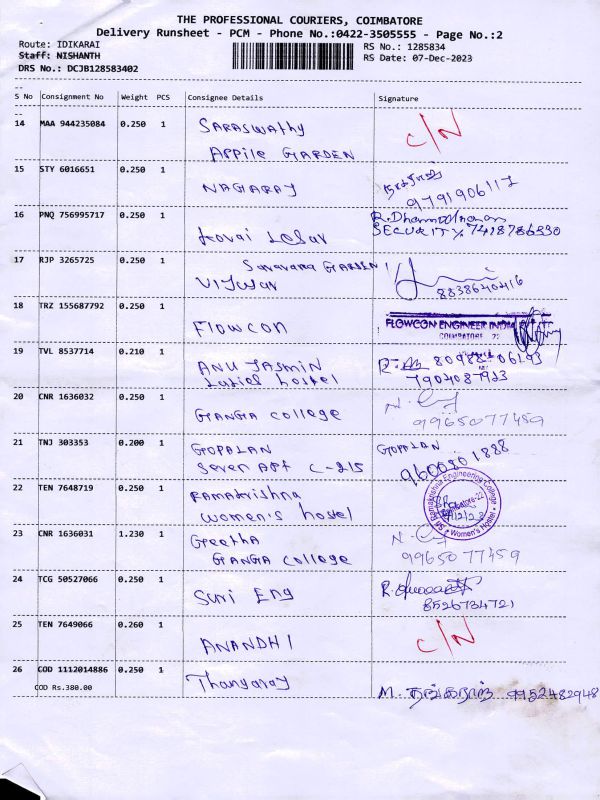 THE PROFESSIONAL COURIERS, COIMBATORE
Delivery Runsheet - PCM - Phone No.:0422-3505555 - Page No.:2
Route: IDIKARAI RS No.: 1285834
Staff: NISHANTH RS Date: 07-Dec-2023
DRS No.: DCJB128583402
S No Consignment No Weight PCS Consignee Details Signature
14 MAA 944235084 0.250 1 SARASWATHY C/N
APPILE GARDEN
15 STY 6016651 0.250 1 NAGARAJ 9791906112
16 PNQ 756995717 0.250 1 Kovai R.Dharmadharan
SECURITY. 7418786330
17 RJP 3265725 0.250 1 Saravana GARDEN
8838640416
18 TRZ 155687792 0.250 1 FLOWCON FLOWCON ENGINEER INDIA
COIMBATORE 22
19 TVL 8537714 0.210 1 ANU JASMIN
hostel 7904087923
20 CNR 1636032 0.250 1 GANGA college 9965077459
21 TNJ 303353 0.200 1 GOPALAN GOPALAN
Seven APT C-215 9600801888
22 TEN 7648719 0.250 1 RAMAKRISHNA Sri Ramakrishna Engineering College
women's hostel Coimbatore-22
Women's Hostel
23 CNR 1636031 1.230 1 Geetha
GANGA college 9965077459
24 TCG 50527066 0.250 1 SURI Eng
8526734721
25 TEN 7649066 0.260 1 ANANDHI C/N
26 COD 1112014886 0.250 1 Thangaraj M. தங்கராஜ் 9952482948
COD Rs.380.00